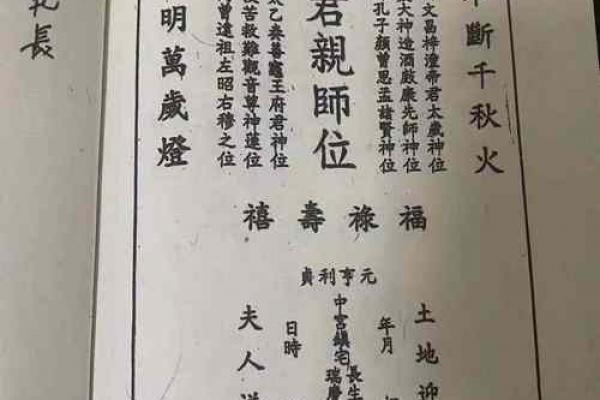 斷千秋火
文昌梓潼帝君太歲神位
大神造酒啟康先師神位
孔子顏曾思孟諸賢神位
君親師位
太乙奏善竈王府君神位
苦救難觀音尊神蓮位
曾遠祖左昭右穆之位
明萬歲燈
福祿壽禧
元亨利貞
土地迎
年月
長生
中宮鎮宅瑞慶
日時
夫人
長